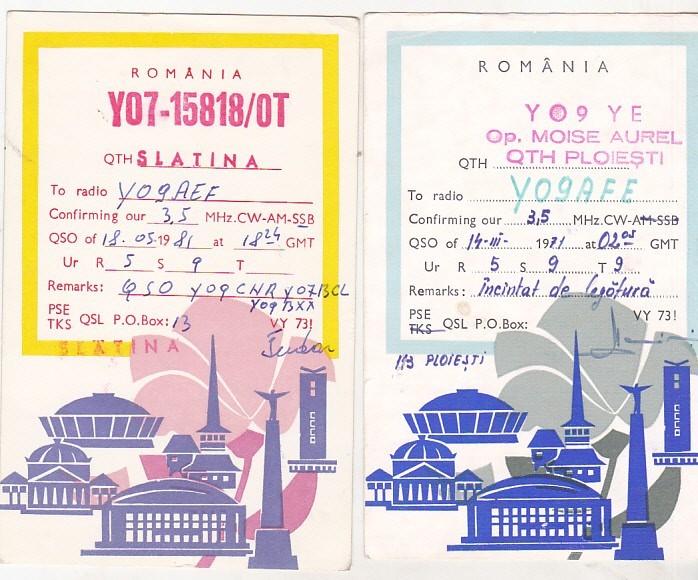 ROMÂNIA
YO7-15818/OT
QTH SLATINA
To radio YO9AEF
Confirming our 3,5 MHz.CW-AM-SSB
QSO of 18.05.1981 at 18 24 GMT
Ur R 5 S 9 T
Remarks: QSO YO9CNR YO7BCL
YO9BXX
PSE
TKS QSL P.O.Box: 13 VY 73!
SLATINA
ROMÂNIA
YO9YE
Op. MOISE AUREL
QTH QTH PLOIEȘTI
To radio YO9AFE
Confirming our 3,5 MHz.CW-AM-SSB
QSO of 14-III- 1971 at 02 05 GMT
Ur R 5 S 9 T 9
Remarks: încîntat de legătură
PSE
TKS QSL P.O.Box: VY 73!
113 PLOIEȘTI